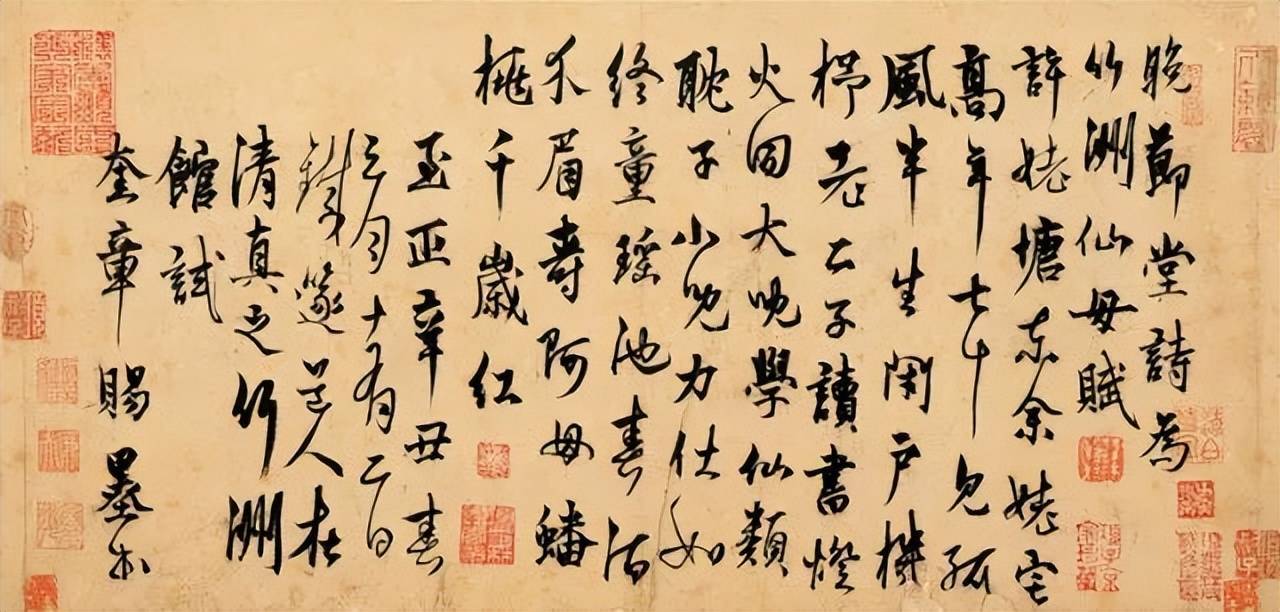 晚節堂詩為
竹洲仙母賦
許姥塘東余姥宅
髙年七十見孤
風半生閉戶機
杼老二子讀書燈
火同大兒學仙類
聃子小兒力仕如
終童瑤池春酒
介眉壽阿母蟠
桃千歲紅
至正辛丑春
三月十有二日
鐵篴道人在
清真之竹洲
館試
奎章賜墨書